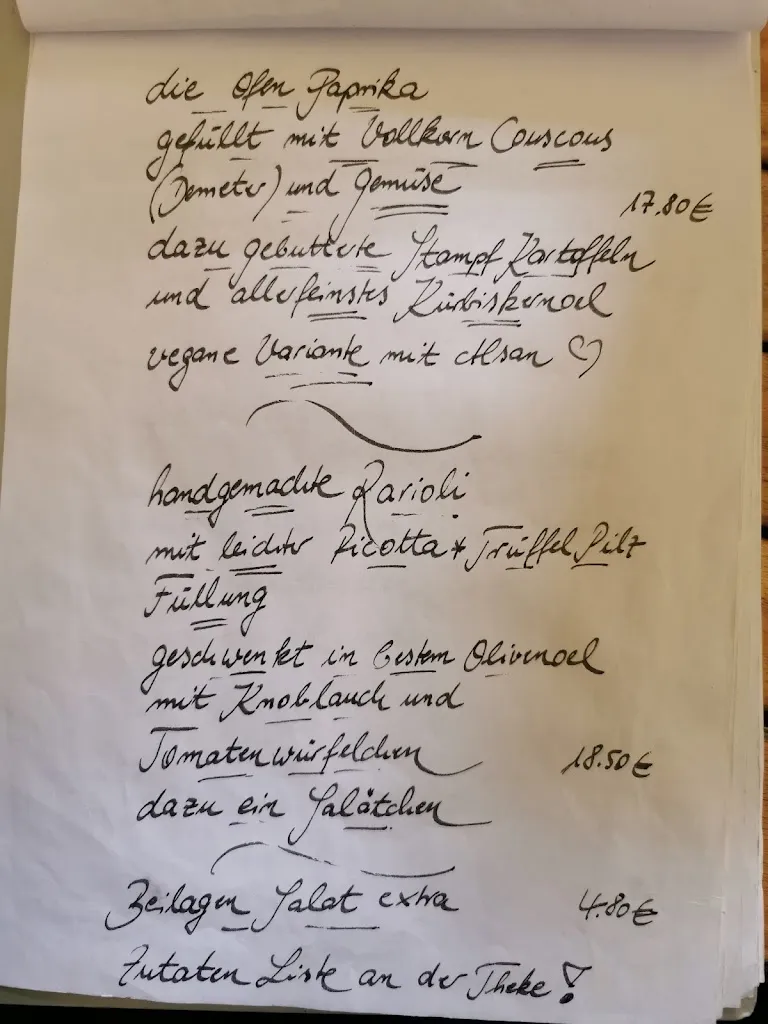 die Ofen Paprika
gefüllt mit Vollkorn Couscous
(Demeter) und Gemüse
17.80€
dazu gebutterte Stampf Kartoffeln
und allerfeinstes Kürbiskernoel
vegane Variante mit Alsan ♡
handgemachte Ravioli
mit leichter Ricotta + Trüffel Pilz
Füllung
geschwenkt in bestem Olivenoel
mit Knoblauch und
Tomatenwürfelchen 18.50€
dazu ein Salätchen
Beilagen Salat extra 4.80€
Zutaten Liste an der Theke!